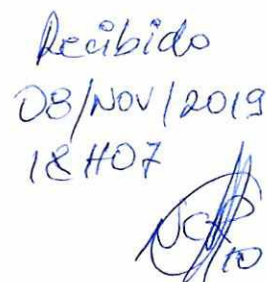 Recibido
08/NOV/2019
18H07